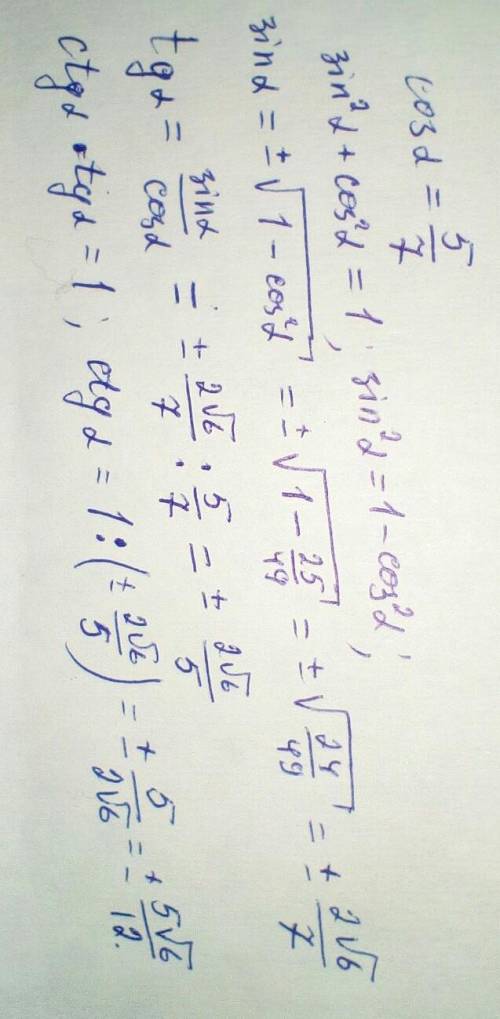 cosα = 5/7
sin²α + cos²α = 1; sin²α = 1 - cos²α;
sinα = ±√(1 - cos²α) = ±√(1 - 25/49) = ±√(24/49) = ± 2√6/7
tgα = sinα/cosα = ± 2√6/7 : 5/7 = ± 2√6/5
ctgα · tgα = 1; ctgα = 1 : (± 2√6/5) = ± 5/2√6 = ± 5√6/12.